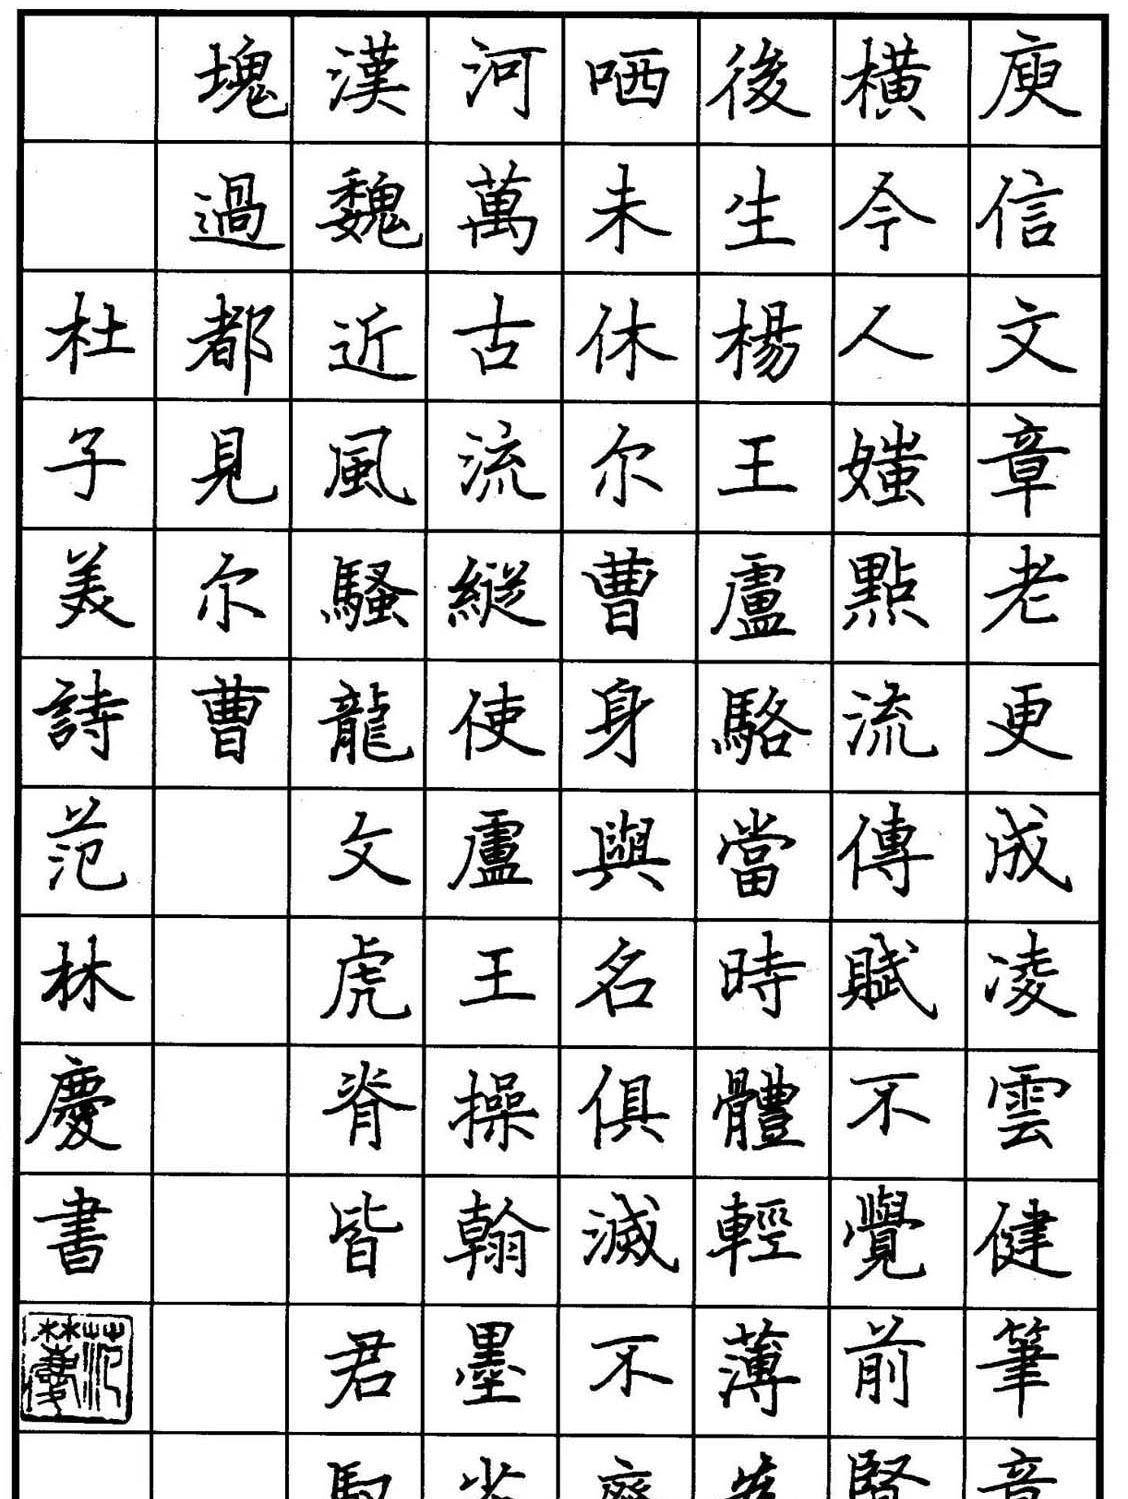 庾信文章老更成凌雲健筆意
橫今人媸點流傳賦不覺前賢
後生楊王盧駱當時體輕薄
哂未休尔曹身與名俱滅不
河萬古流縱使盧王操翰墨劣
漢魏近風騷龍文虎脊皆君馭
塊過都見尔曹
杜子美詩范林慶書
范林慶